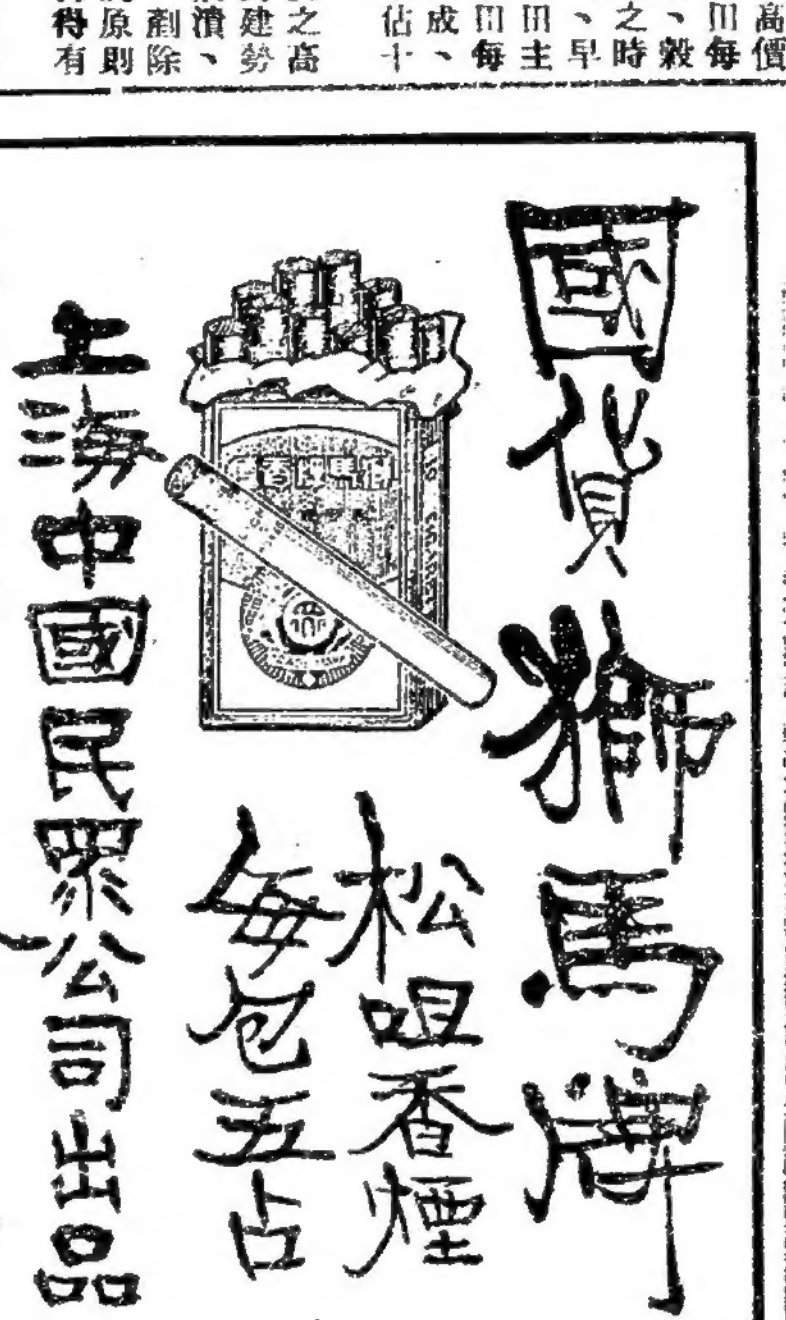 高價
田每
、穀
之時
、早
田主
田每
成、
佔十
之高
建勢
潰、
剷除
原則
得有
國貨獅馬牌
松咀香煙
每包五占
上海中國民眾公司出品